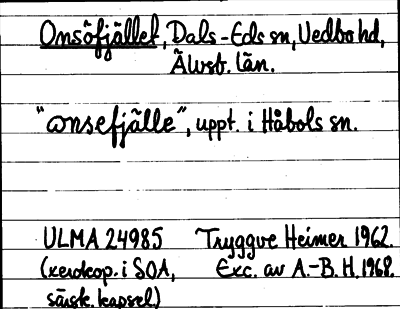 Onsöfjället, Dals-Eds sn, Vedbo hd,
Älvsb. län.
"ωnsefjälle", uppt. i Håbols sn.
ULMA 24985 Tryggve Heimer 1962.
(xerokop. i SOA, Exc. av A.-B. H. 1968.
särsk. kapsel)